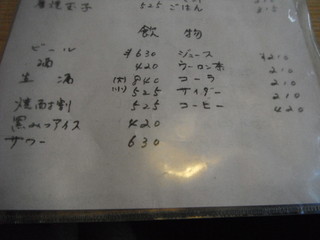 玉子 525 ごはん 210
飲物
ビール ¥630 ジュース ¥210
酒 420 ウーロン茶 210
生酒 (大) 840 コーラ 210
(小) 525 サイダー 210
焼酎割 525 コーヒー 420
黒みつアイス 420
サワー 630